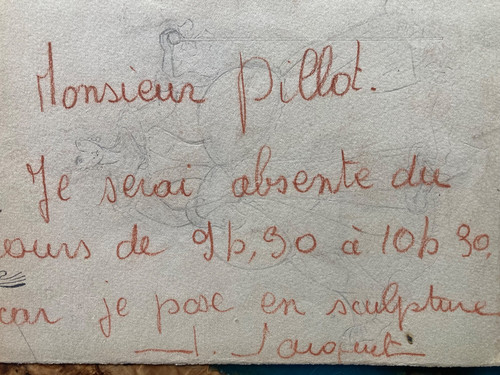 Monsieur Pillot.
Je serai absente du
cours de 9h,30 à 10h 30,
car je pose en sculpture